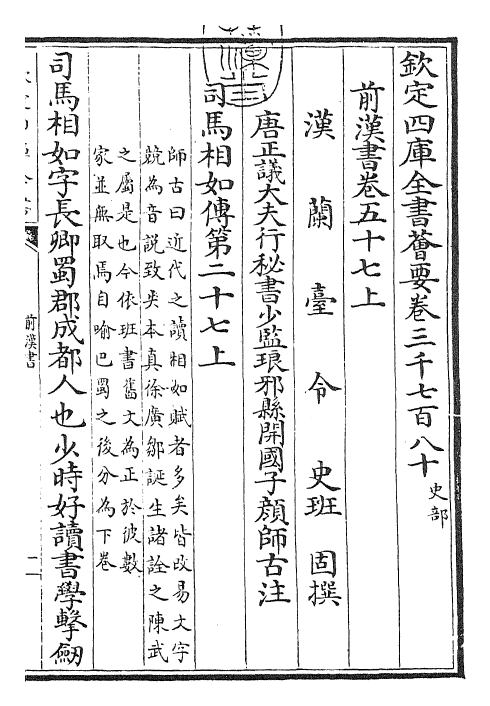 欽定四庫全書薈要卷三千七百八十 史部
前漢書卷五十七上
漢蘭臺令史班固撰
唐正議大夫行秘書少監琅邪縣開國子顏師古注
司馬相如傳第二十七上
師古曰近代之讀相如賦者多矣皆改易文字
競為音說致失本真徐廣鄒誕生諸詮之陳武
之屬是也今依班書舊文為正於彼數
家並無取焉自喻巴蜀之後分為下卷
司馬相如字長卿蜀郡成都人也少時好讀書學擊劒
前漢書